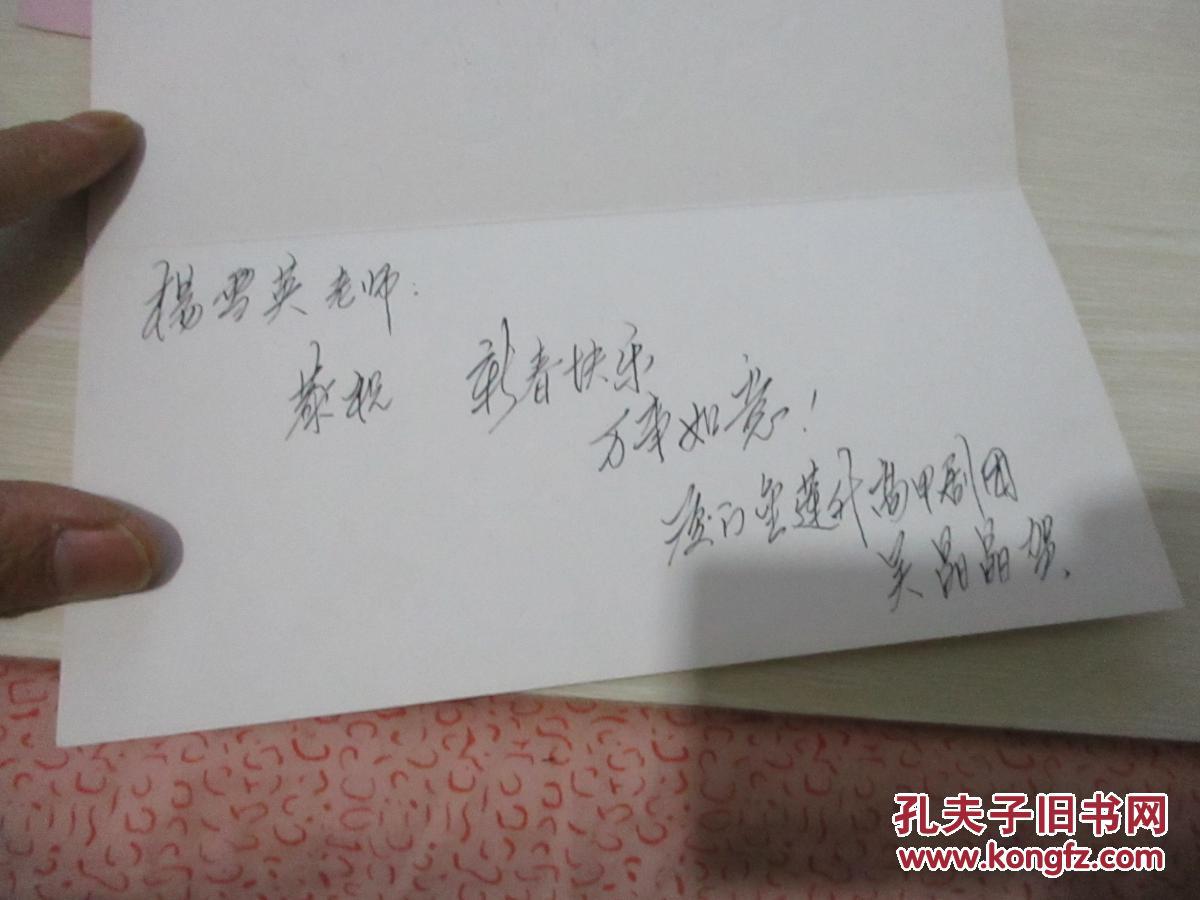 楊雪英老师:
恭祝 新春快乐
万事如意!
厦门金莲升高甲剧团
吴晶晶贺
孔夫子旧书网
www.kongfz.com